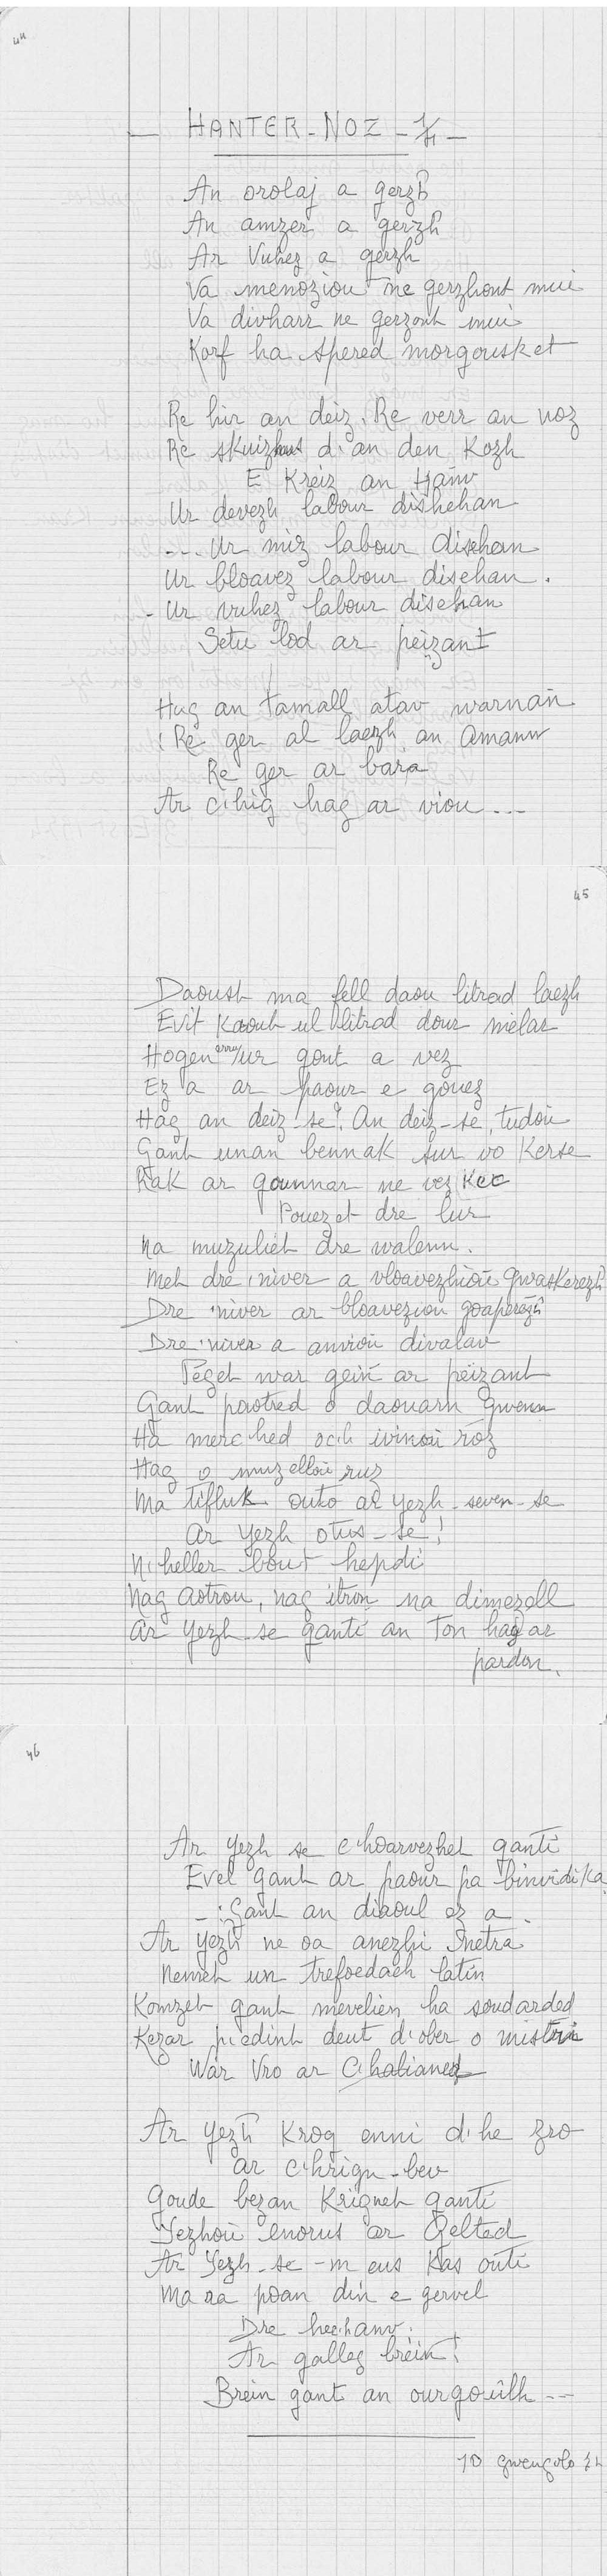 44
— HANTER-NOZ - 1/4 —
An orolaj a gerzh
An amzer a gerzh
Ar Vuhez a gerzh
Va menoziou ne gerzhont mui
Va divharr ne gerzont mui
Korf ha spered morgousket
Re hir an deiz, Re verr an noz
Re skuizhus d'an den Kozh
E Kreiz an Hañv
Ur devezh labour dishehan
... Ur miz labour disehan
Ur bloavez labour disehan.
- Ur vuhez labour disehan
Setu lod ar peizant
Hag an tamall atav warnañ
! Re ger al laezh an Amann
Re ger ar bara
Ar c'hig hag ar viou ...
45
Daoust ma fell daou litrad laezh
Evit Kaout ul litrad dour melar
Hogen ur gont a vez
Ez a ar paour e gouez
Hag an deiz-se? An deiz-se, tudoù
Gant unan bennak sur vo Kerse
Rak ar gounnar ne vez Ket
Pouezet dre lur
Na muzuliet dre walenn.
Met dre 'niver a vloavezhioù gwaskerezh
Dre 'niver ar bloaveziou goaperezh
Dre 'niver a anvioù divalav
Peget war gein ar peizant
Gant paotred o daouarn gwenn
Ha merc'hed o c'h ivinoù roz
Hag o muzelloù ruz
Ma tifluk outo ar yezh-seven-se
Ar yezh otus-se!
N'heller bout hepdi
Nag aotrou, nag itron na dimezell
Ar yezh-se ganti an Ton hag ar
pardon.
46
Ar yezh se c'hoarvezhet ganti
Evel gant ar paour pa binvidika
- : Gant an diaoul ez a.
Ar yezh ne oa anezhi Netra
Nemet un trefoedach latin
Komzet gant mevelien ha soudarded
Kezar deut d'ober o mistri
War Vro ar C'halianed
Ar yezh Krog enni d'he zro
ar c'hrign-bev
Goude bezan Krignet ganti
Yezhoù enorus ar Gelted
Ar Yezh-se -m eus Kas outi
Ma ra poan din e gervel
Dre hec'hanv.
Ar galleg brein!
Brein gant an ourgouilh ...
10 gwengolo